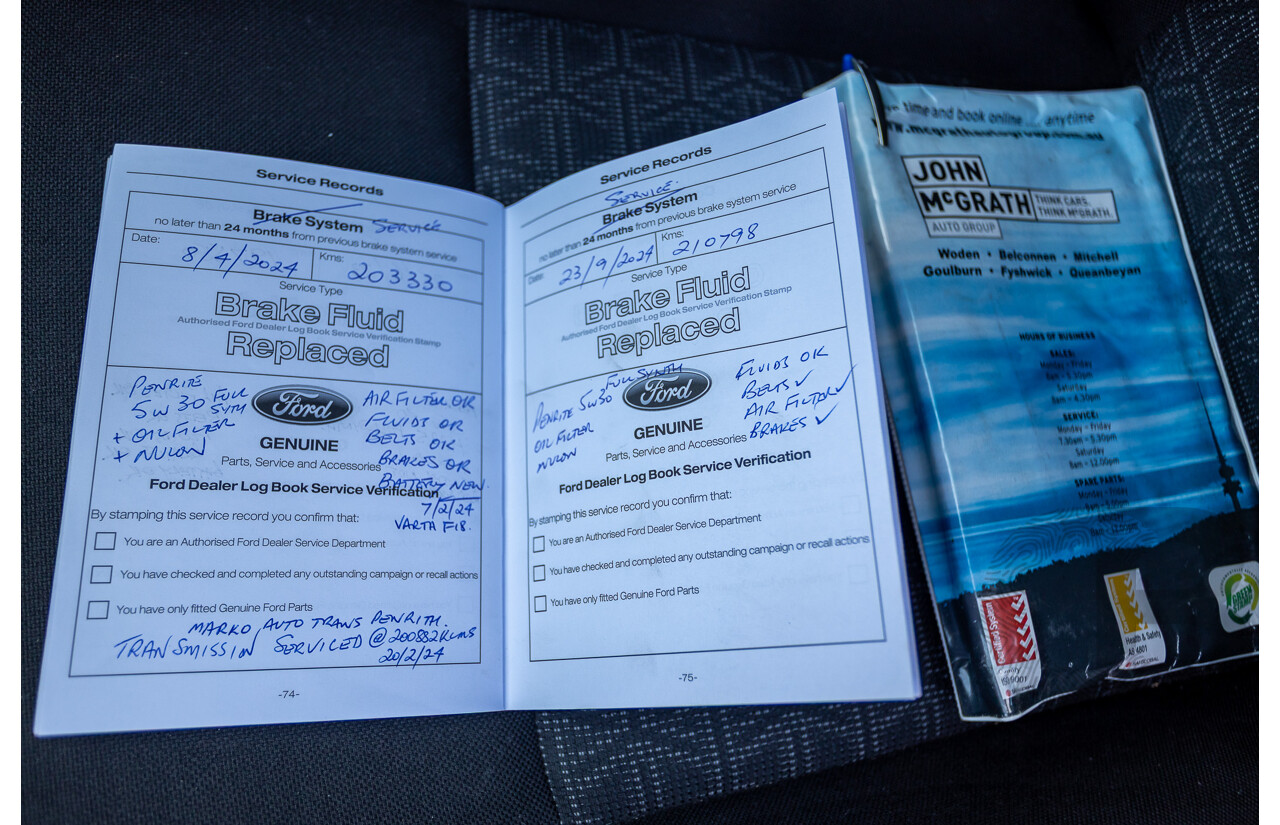 Service Records
Brake System SERVICE
no later than 24 months from previous brake system service
Date: 8/4/2024 Kms: 203330
Service Type
Brake Fluid
Authorised Ford Dealer Log Book Service Verification Stamp
Replaced
PENRITE
5W30 FULL
SYTH
+ OIL FILTER
+ NULON
Ford
GENUINE
Parts, Service and Accessories
AIR FILTER OK
FLUIDS OK
BELTS OK
BRAKES OK
BATTERY NEW.
7/2/24
VARTA F18.
Ford Dealer Log Book Service Verification
By stamping this service record you confirm that:
You are an Authorised Ford Dealer Service Department
You have checked and completed any outstanding campaign or recall actions
You have only fitted Genuine Ford Parts
MARKO AUTO TRANS PENRITH.
TRANSMISSION SERVICED @ 200882KMS
20/2/24
-74-
Service Records
SERVICE
Brake System
no later than 24 months from previous brake system service
Date: 23/9/2024 Kms: 210798
Service Type
Brake Fluid
Authorised Ford Dealer Log Book Service Verification Stamp
Replaced
PENRITE 5W30 FULL SYNTH
OIL FILTER
NULON
Ford
GENUINE
Parts, Service and Accessories
FLUIDS OK
BELTS ✓
AIR FILTER ✓
BRAKES ✓
Ford Dealer Log Book Service Verification
By stamping this service record you confirm that:
You are an Authorised Ford Dealer Service Department
You have checked and completed any outstanding campaign or recall actions
You have only fitted Genuine Ford Parts
-75-
time and book online ... anytime
www.mcgrathautogroup.com.au
JOHN
McGRATH
AUTO GROUP
THINK CARS.
THINK McGRATH.
Woden • Belconnen • Mitchell
Goulburn • Fyshwick • Queanbeyan
HOURS OF BUSINESS
SALES:
Monday - Friday
Saturday
SERVICE:
Monday - Friday
7.30am - 5.30pm
Saturday
8am - 12.00pm
SPARE PARTS:
Monday - Friday
Saturday
Quality
ISO 9001
Health & Safety
AS 4801
GREEN